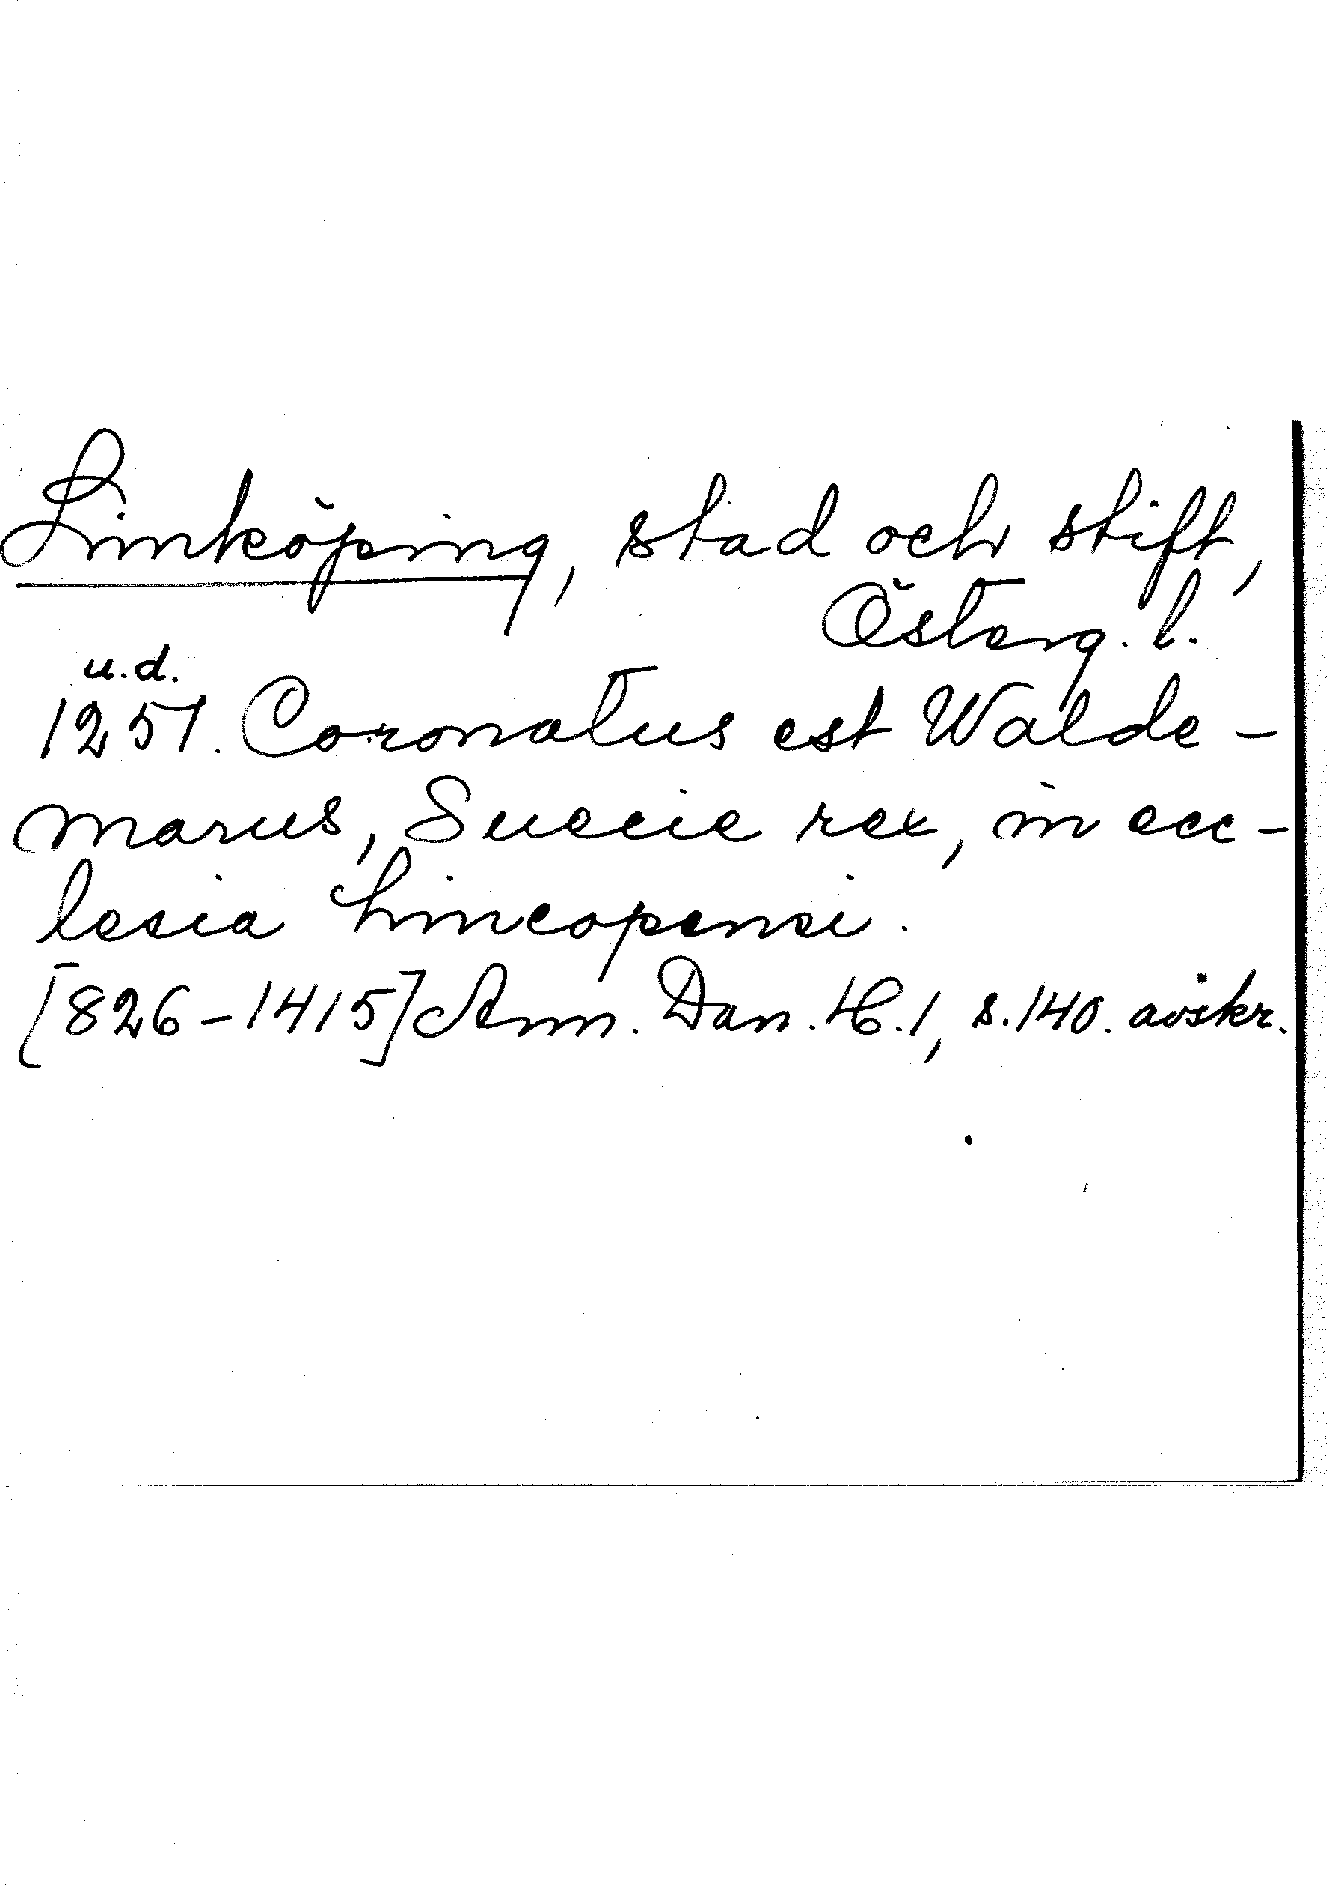 Linköping, stad och stift,
Österg. l.
u.d.
1251. Coronatus est Walde-
marus, Suecie rex, in ecc-
lesia lincopensi.
[826-1415] Ann. Dan. H. 1, s. 140. avskr.